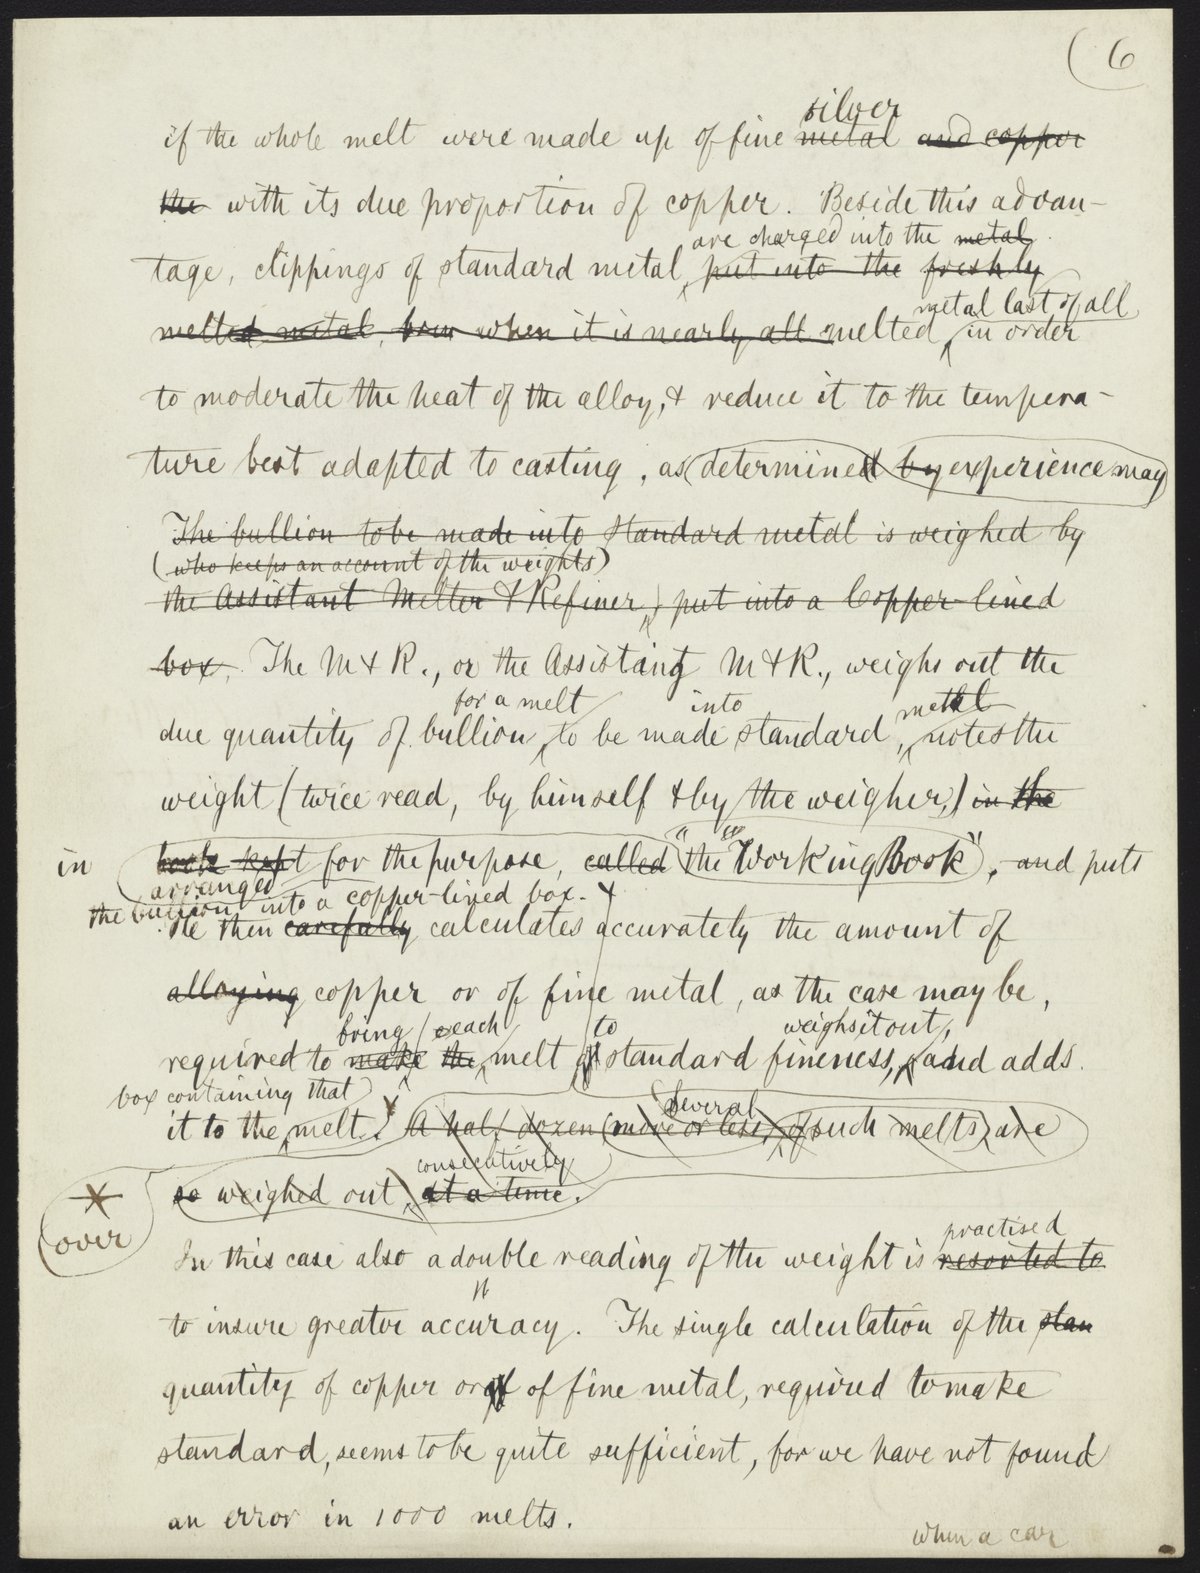 (6
silver
if the whole melt were made up of fine metal and copper
the with its due proportion of copper. Beside this advan-
are charged into the metal
tage, clippings of standard metal, put into the freshly
metal last of all
melted metal, when it is nearly all melted in order
to moderate the heat of the alloy, & reduce it to the tempera-
ture best adapted to casting, as (determined by experience may
The bullion to be made into standard metal is weighed by
(who keeps an account of the weights)
the Assistant Melter & Refiner, put into a Copper-lined
box. The M & R., or the Assistant M & R., weighs out the
for a melt into metal
due quantity of bullion, to be made standard, notes the
weight (twice read, by himself & by the weigher,) in the
in book kept for the purpose, called "the "Working Book", and puts
arranged
the bullion into a copper-lined box. &
He then carefully calculates accurately the amount of
alloying copper or of fine metal, as the case may be,
bring each to weighs it out,
required to make the melt of standard fineness, and adds
box containing that
it to the melt. A half dozen (more or less) of such melts, are
several
consecutively
so weighed out, at a time.
*
over
practised
In this case also a double reading of the weight is resorted to
to insure greator accuracy. The single calculation of the stan
quantity of copper or of of fine metal, required to make
standard, seems to be quite sufficient, for we have not found
an error in 1000 melts.
When a car